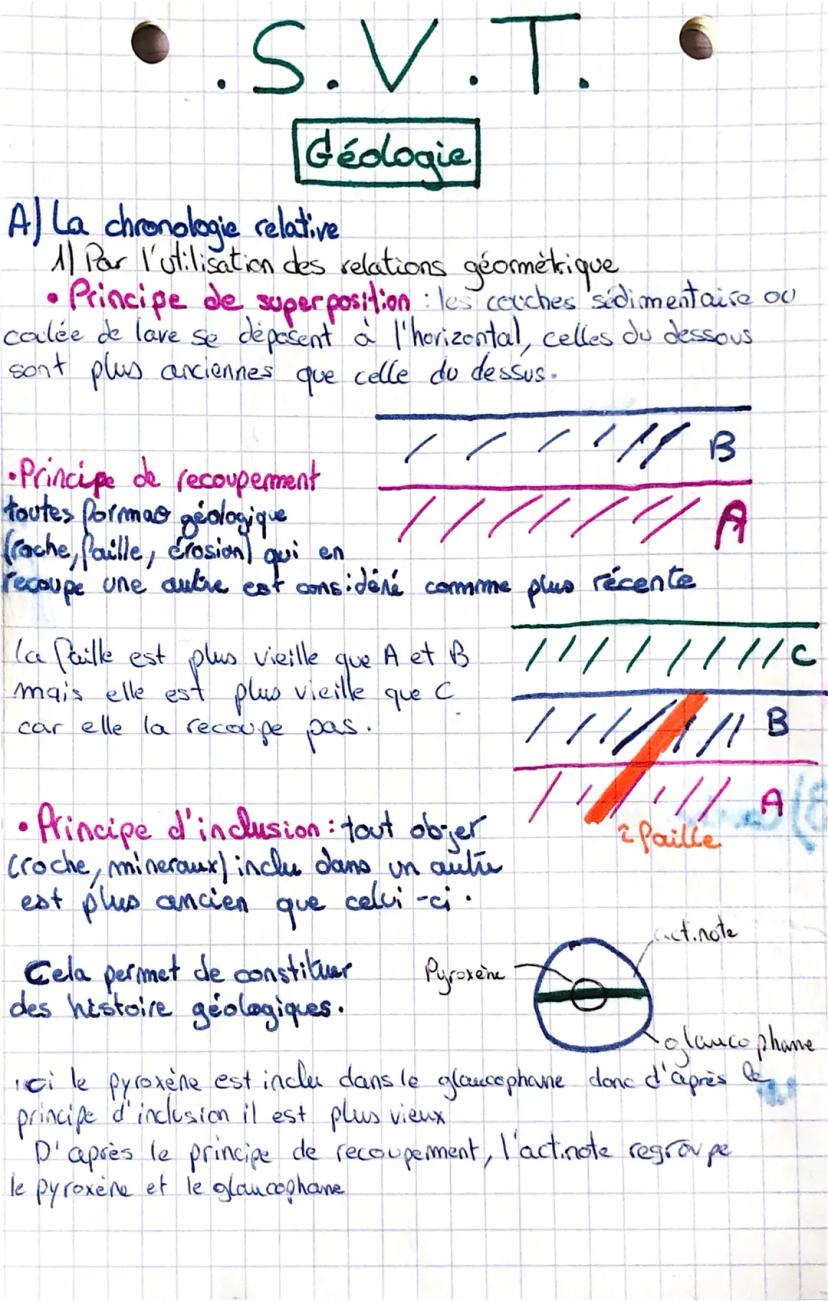 .S.V.T.
Géologie
A) La chronologie relative
1) Par l'utilisation des relations géométrique
• Principe de superposition : les couches sédimentaire ou
coulée de lave se déposent à l'horizontal, celles du dessous
sont plus anciennes que celle du dessus.
B
A
• Principe de recoupement
toutes formao géologique
(roche, faille, érosion) qui en
recoupe une autre est considéré commme plus récente
la faille est plus vieille que A et B
mais elle est plus vieille que C
car elle la recoupe pas.
C
B
A
faille
• Principe d'inclusion : tout objer
(roche, mineraux) inclu dans un autre
est plus ancien que celui-ci.
Cela permet de constituer
des histoire géologiques.
Pyroxène
act.note
glaucophane
ici le pyroxène est inclu dans le glaucophane donc d'après le
principe d'inclusion il est plus vieux
D'après le principe de recoupement, l'act.note regroupe
le pyroxène et le glaucophane